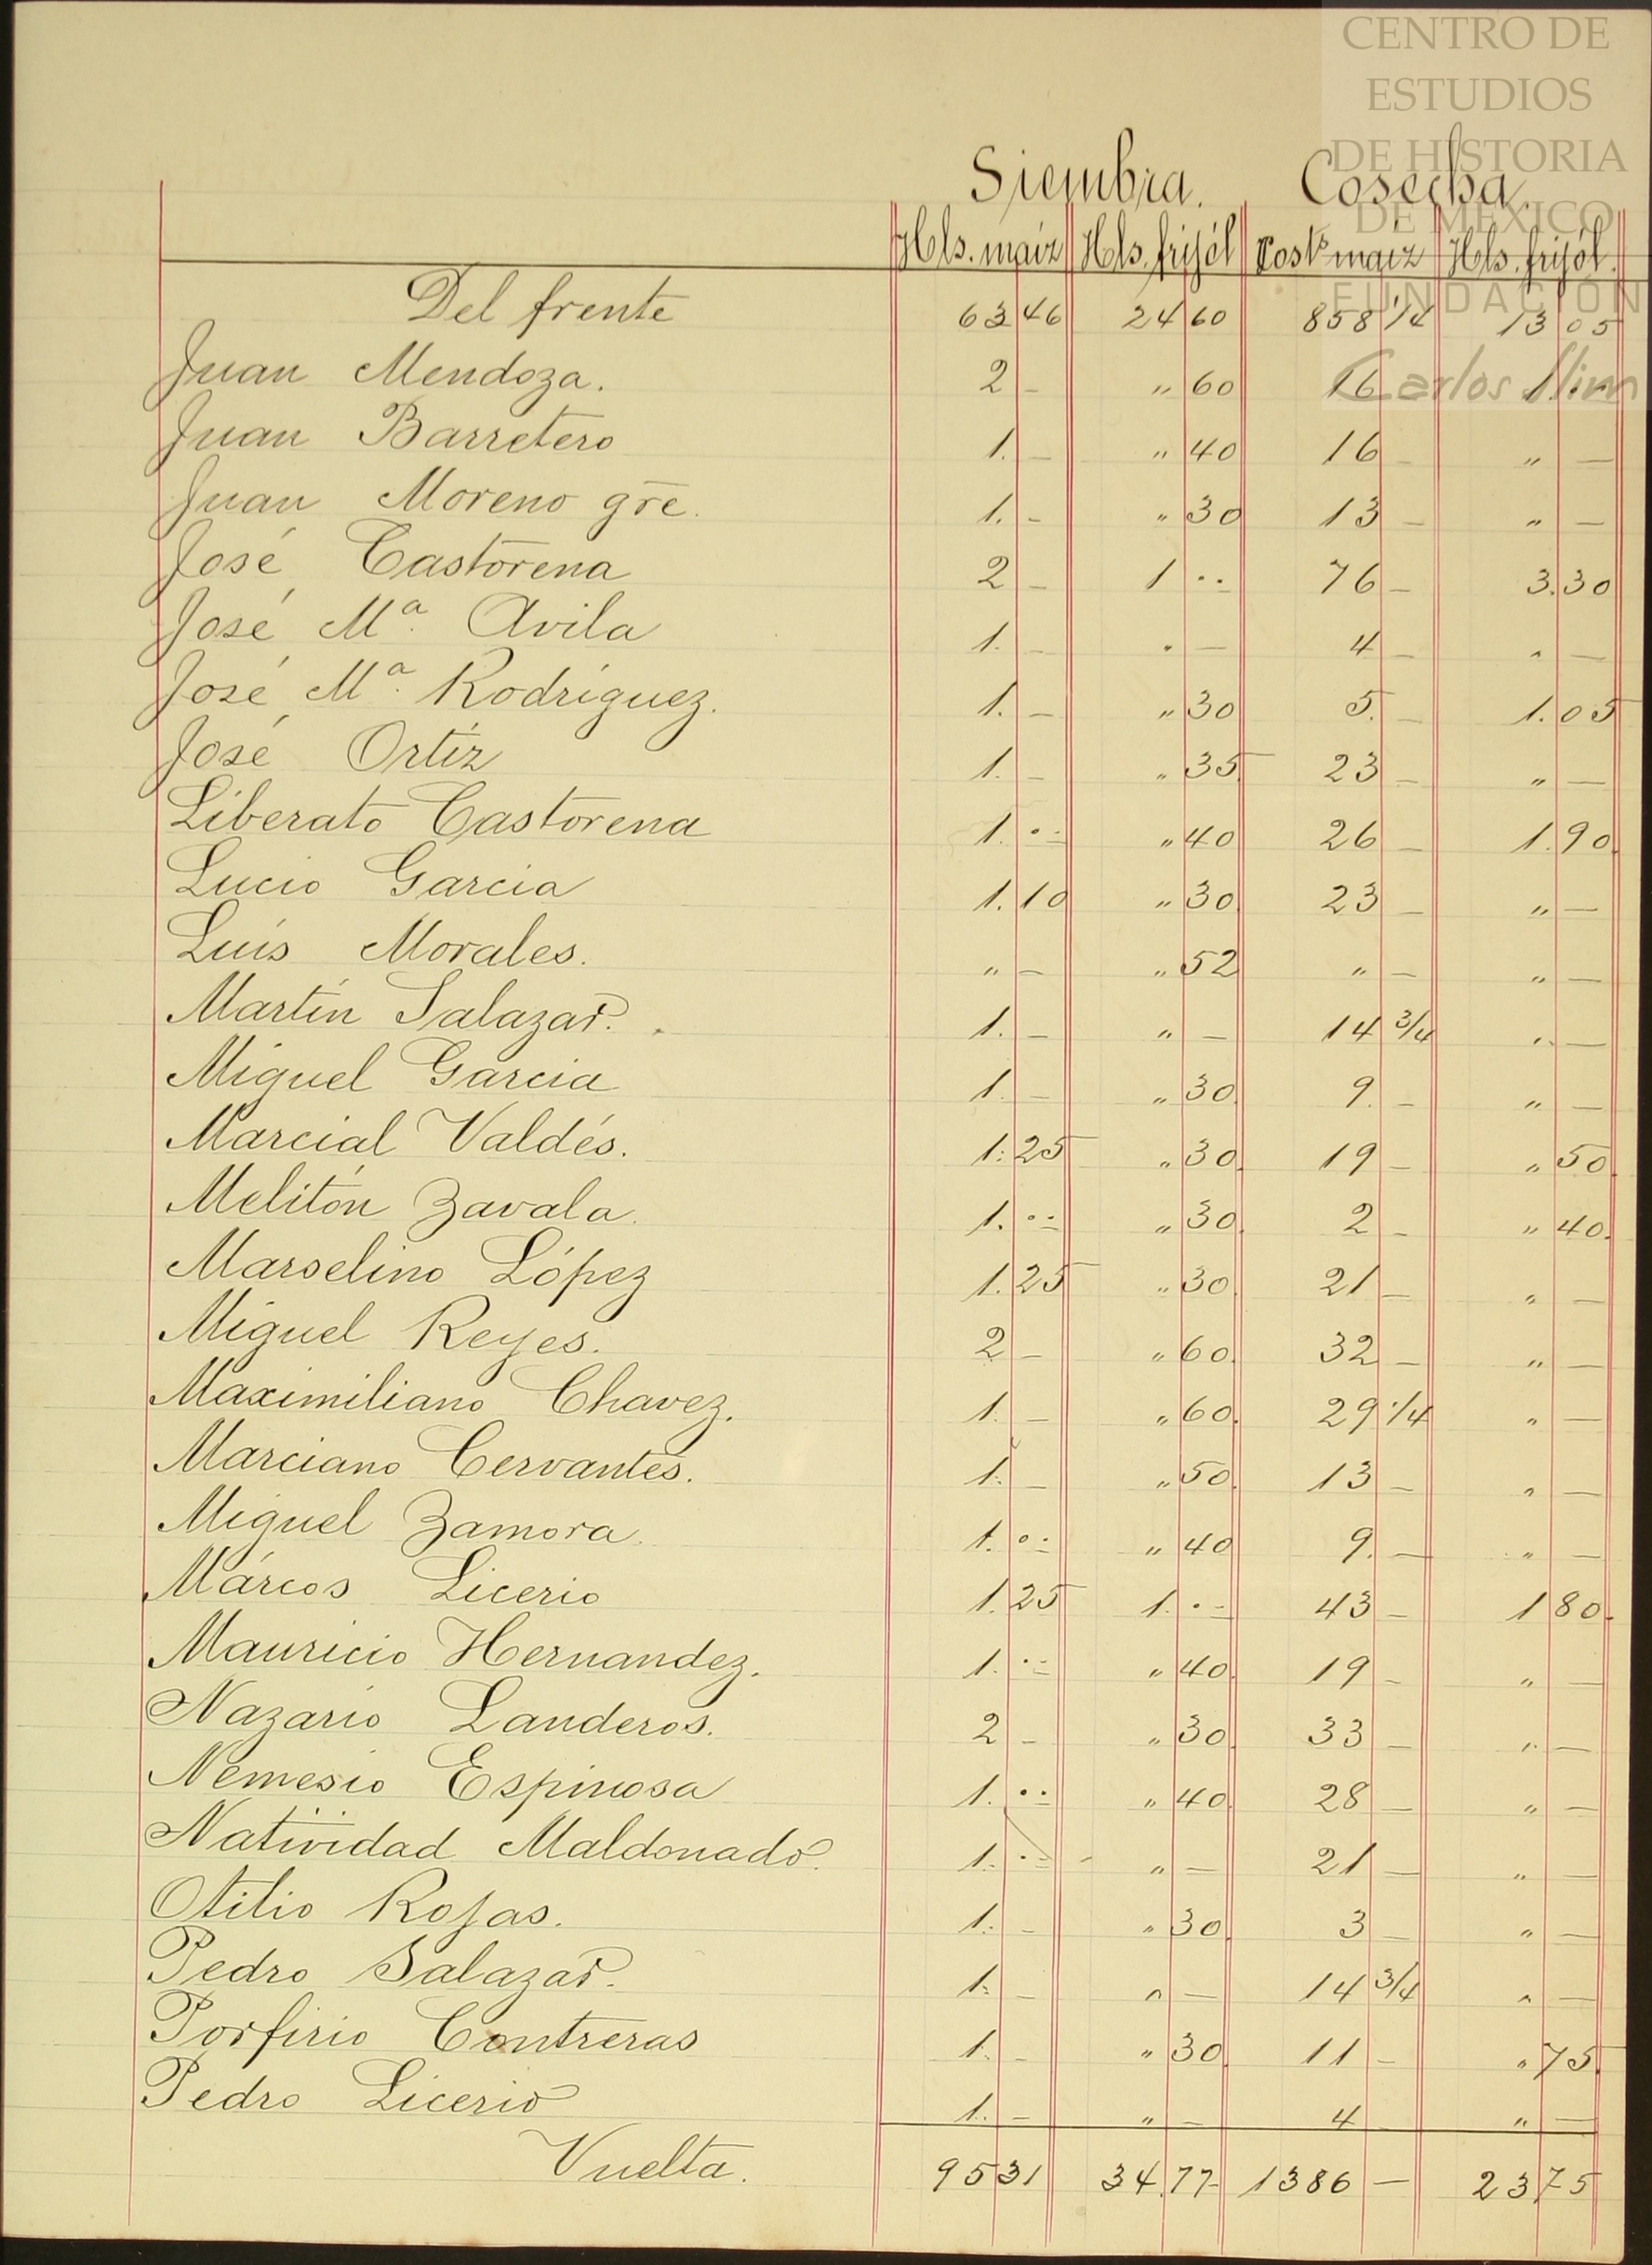 CENTRO DE
ESTUDIOS
DE HISTORIA
DE MÉXICO
FUNDACIÓN
Carlos Slim
Siembra. Cosecha.
Hls. maíz Hls. frijól Cost.s maíz Hls. frijól.
Del frente 63 46 24 60 858 1/4 13 05
Juan Mendoza. 2 – " 60 16 1.
Juan Barretero 1. – " 40 16 – " –
Juan Moreno gre. 1. – " 30 13 – " –
José Castorena 2 – 1 .. 76 – 3.30
José Ma. Avila 1. – " – 4 – " –
José Ma. Rodriguez. 1. – " 30 5. – 1.05
José Ortiz 1. – " 35 23 – " –
Liberato Castorena 1. .. " 40 26 – 1.90
Lucio Garcia 1. 10 " 30 23 – " –
Luis Morales. " – " 52 " – " –
Martín Salazar. 1. – " – 14 3/4 " –
Miguel Garcia 1. – " 30 9. – " –
Marcial Valdés. 1. 25 " 30 19 – " 50
Melitón Zavala. 1. .. " 30 2 – " 40
Marselino López 1. 25 " 30 21 – " –
Miguel Reyes. 2 – " 60 32 – " –
Maximiliano Chavez. 1. – " 60 29 1/4 " –
Marciano Cervantes. 1. – " 50 13 – " –
Miguel Zamora. 1. .. " 40 9. – " –
Márcos Licerio 1. 25 1. .. 43 – 1 80
Mauricio Hernandez. 1. .. " 40 19 – " –
Nazario Landeros. 2 – " 30 33 – " –
Nemesio Espinosa 1. .. " 40 28 – " –
Natividad Maldonado. 1. .. " – 21 – " –
Otilio Rojas. 1. – " 30 3 – " –
Pedro Salazar. 1. – " – 14 3/4 " –
Porfirio Contreras 1. – " 30 11 – " 75
Pedro Licerio 1. – " – 4 – " –
Vuelta. 95 31 34.77 1386 – 23 75